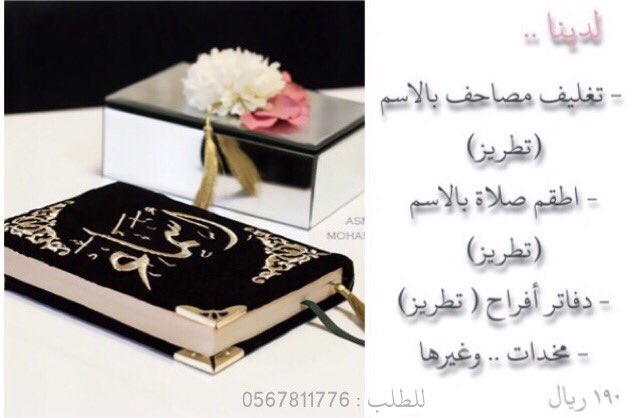 لدينا ..
- تغليف مصاحف بالاسم
(تطريز)
- اطقم صلاة بالاسم
(تطريز)
- دفاتر أفراح ( تطريز)
- مخدات .. وغيرها
١٩٠ ريال
للطلب : 0567811776
ASM
MOHAM